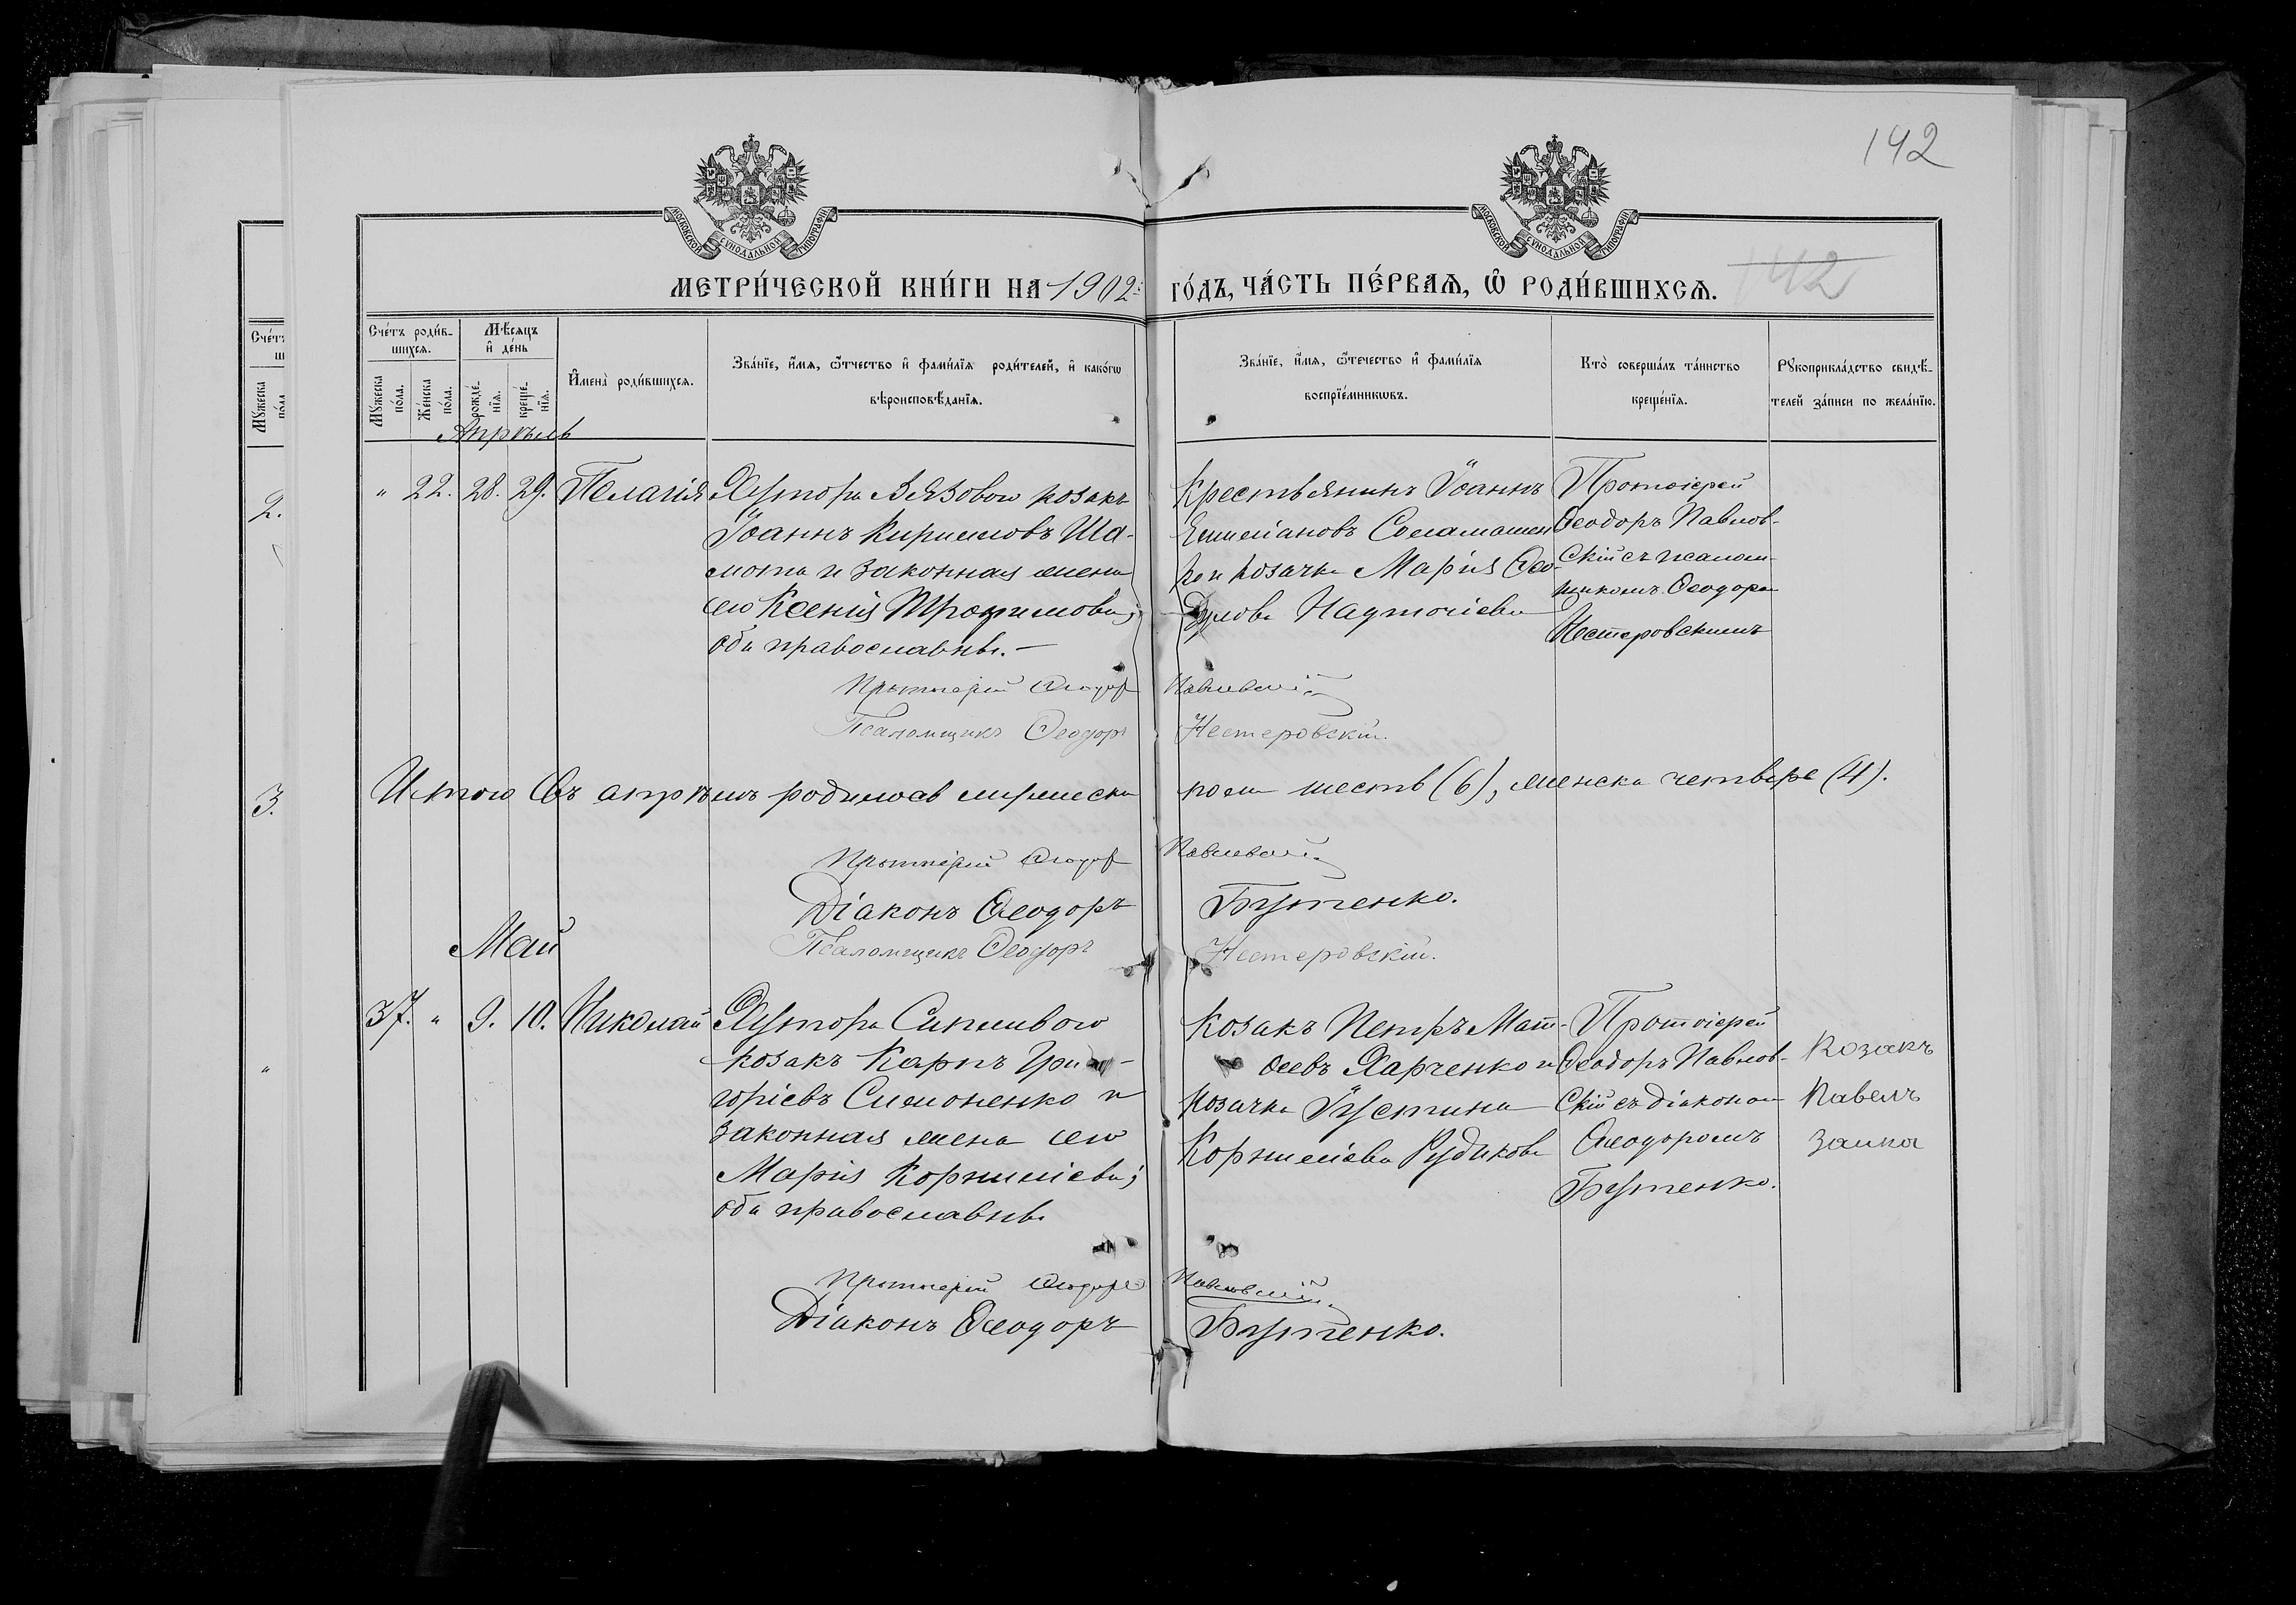 142
МОСКОВСКОЙ СѴНОДАЛЬНОЙ ТИПОГРАФІИ
МОСКОВСКОЙ СѴНОДАЛЬНОЙ ТИПОГРАФІИ
МЕТРИ́ЧЕСКОЙ КНИ́ГИ НА 1902: ГО́ДЪ, ЧА́СТЬ ПЕ́РВАѦ, Ѽ РОДИ́ВШИХСѦ. 142
Сче́тъ роди́в-
шихсѧ.
Мѣ́сѧцъ
и҆ де́нь
Мꙋ́жеска
по́ла.
Же́нска
по́ла.
рожде́-
нїѧ.
креще́-
нїѧ.
И҆мена̀ роди́вшихсѧ.
Зва́нїе, и҆́мѧ, ѻ҆́тчество и҆ фами́лїѧ роди́телей, и҆ како́гѡ
вѣроисповѣ́данїѧ.
Зва́нїе, и҆́мѧ, ѻ҆́течество и҆ фами́лїѧ
воспрїе́мникѡвъ.
Кто̀ соверша́лъ та́инство
креще́нїѧ.
Рꙋкоприкла́дство свидѣ́-
телей за́писи по жела́нїю.
Апрѣль
" 22. 28. 29. Пелагія
Хутора Вязового козакъ
Іоаннъ Кирилловъ Ша-
мота и законная жена
его Ксенія Трофимова;
оба православны.—
Крестьянинъ Іоаннъ
Емеліановъ Соламашен-
ко и козачка Марія Ѳео-
дулова Надточіева
Протоіерей
Ѳеодоръ Павлов-
скій съ псалом-
щикомъ Ѳеодоромъ
Нестеровскимъ
Протоіерей Ѳеодоръ Павловскій.
Псаломщикъ Ѳеодоръ Нестеровскій.
Итого въ апрѣлѣ родилось мужеска пола шесть (6), женска четверо (4).
Протоіерей Ѳеодоръ Павловскій.
Діаконъ Ѳеодоръ Бутенко.
Псаломщикъ Ѳеодоръ Нестеровскій.
Май
37. " 9. 10. Николай
Хутора Сипливого
козакъ Карпъ Гри-
горіевъ Симоненко и
законная жена его
Марія Корниліева;
оба православны
Козакъ Петръ Мат-
ѳеевъ Харченко и
козачка Іустина
Корниліева Рудикова
Протоіерей
Ѳеодоръ Павлов-
скій съ діакономъ
Ѳеодоромъ
Бутенко.
Козакъ
Павелъ
Заика
Протоіерей Ѳеодоръ Павловскій.
Діаконъ Ѳеодоръ Бутенко.
Сче́т
Мꙋ́жеска
по́ла
2.
3.
"